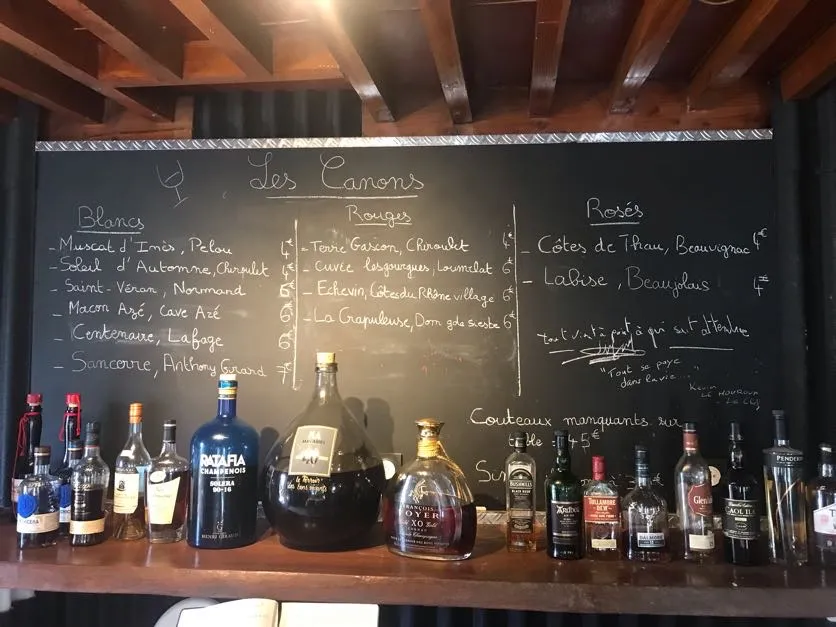 Les Canons
Blancs
- Muscat d'Inès, Pelou 4€
- Soleil d'Automne, Chiroulet 4€
- Saint-Véran, Normand 6€
- Macon Azé, Cave Azé 6€
- Centenaire, Lafage 6€
- Sancerre, Anthony Girard 7€
Rouges
- Terre Gascon, Chiroulet 4€
- Cuvée lesgourgues, Loumelat 6€
- Echevin, Côtes du Rhône village 6€
- La Crapuleuse, Dom gde sieste 6€
Rosés
- Côtes de Thau, Beauvignac 4€
- Labise, Beaujolais 4€
tout vient à point à qui sait attendre
"Tout se paye
dans la vie..."
Couteaux manquants sur
45€
RATAFIA
CHAMPENOIS
SOLERA
90-16
HENRI GIRAUD
XO
le Terroir
FRANÇOIS
VOYER
XO Gold
COGNAC
BUSHMILLS
BLACK BUSH
Ardbeg
TULLAMORE
DEW
DALMORE
CAOL ILA
PENDERYN